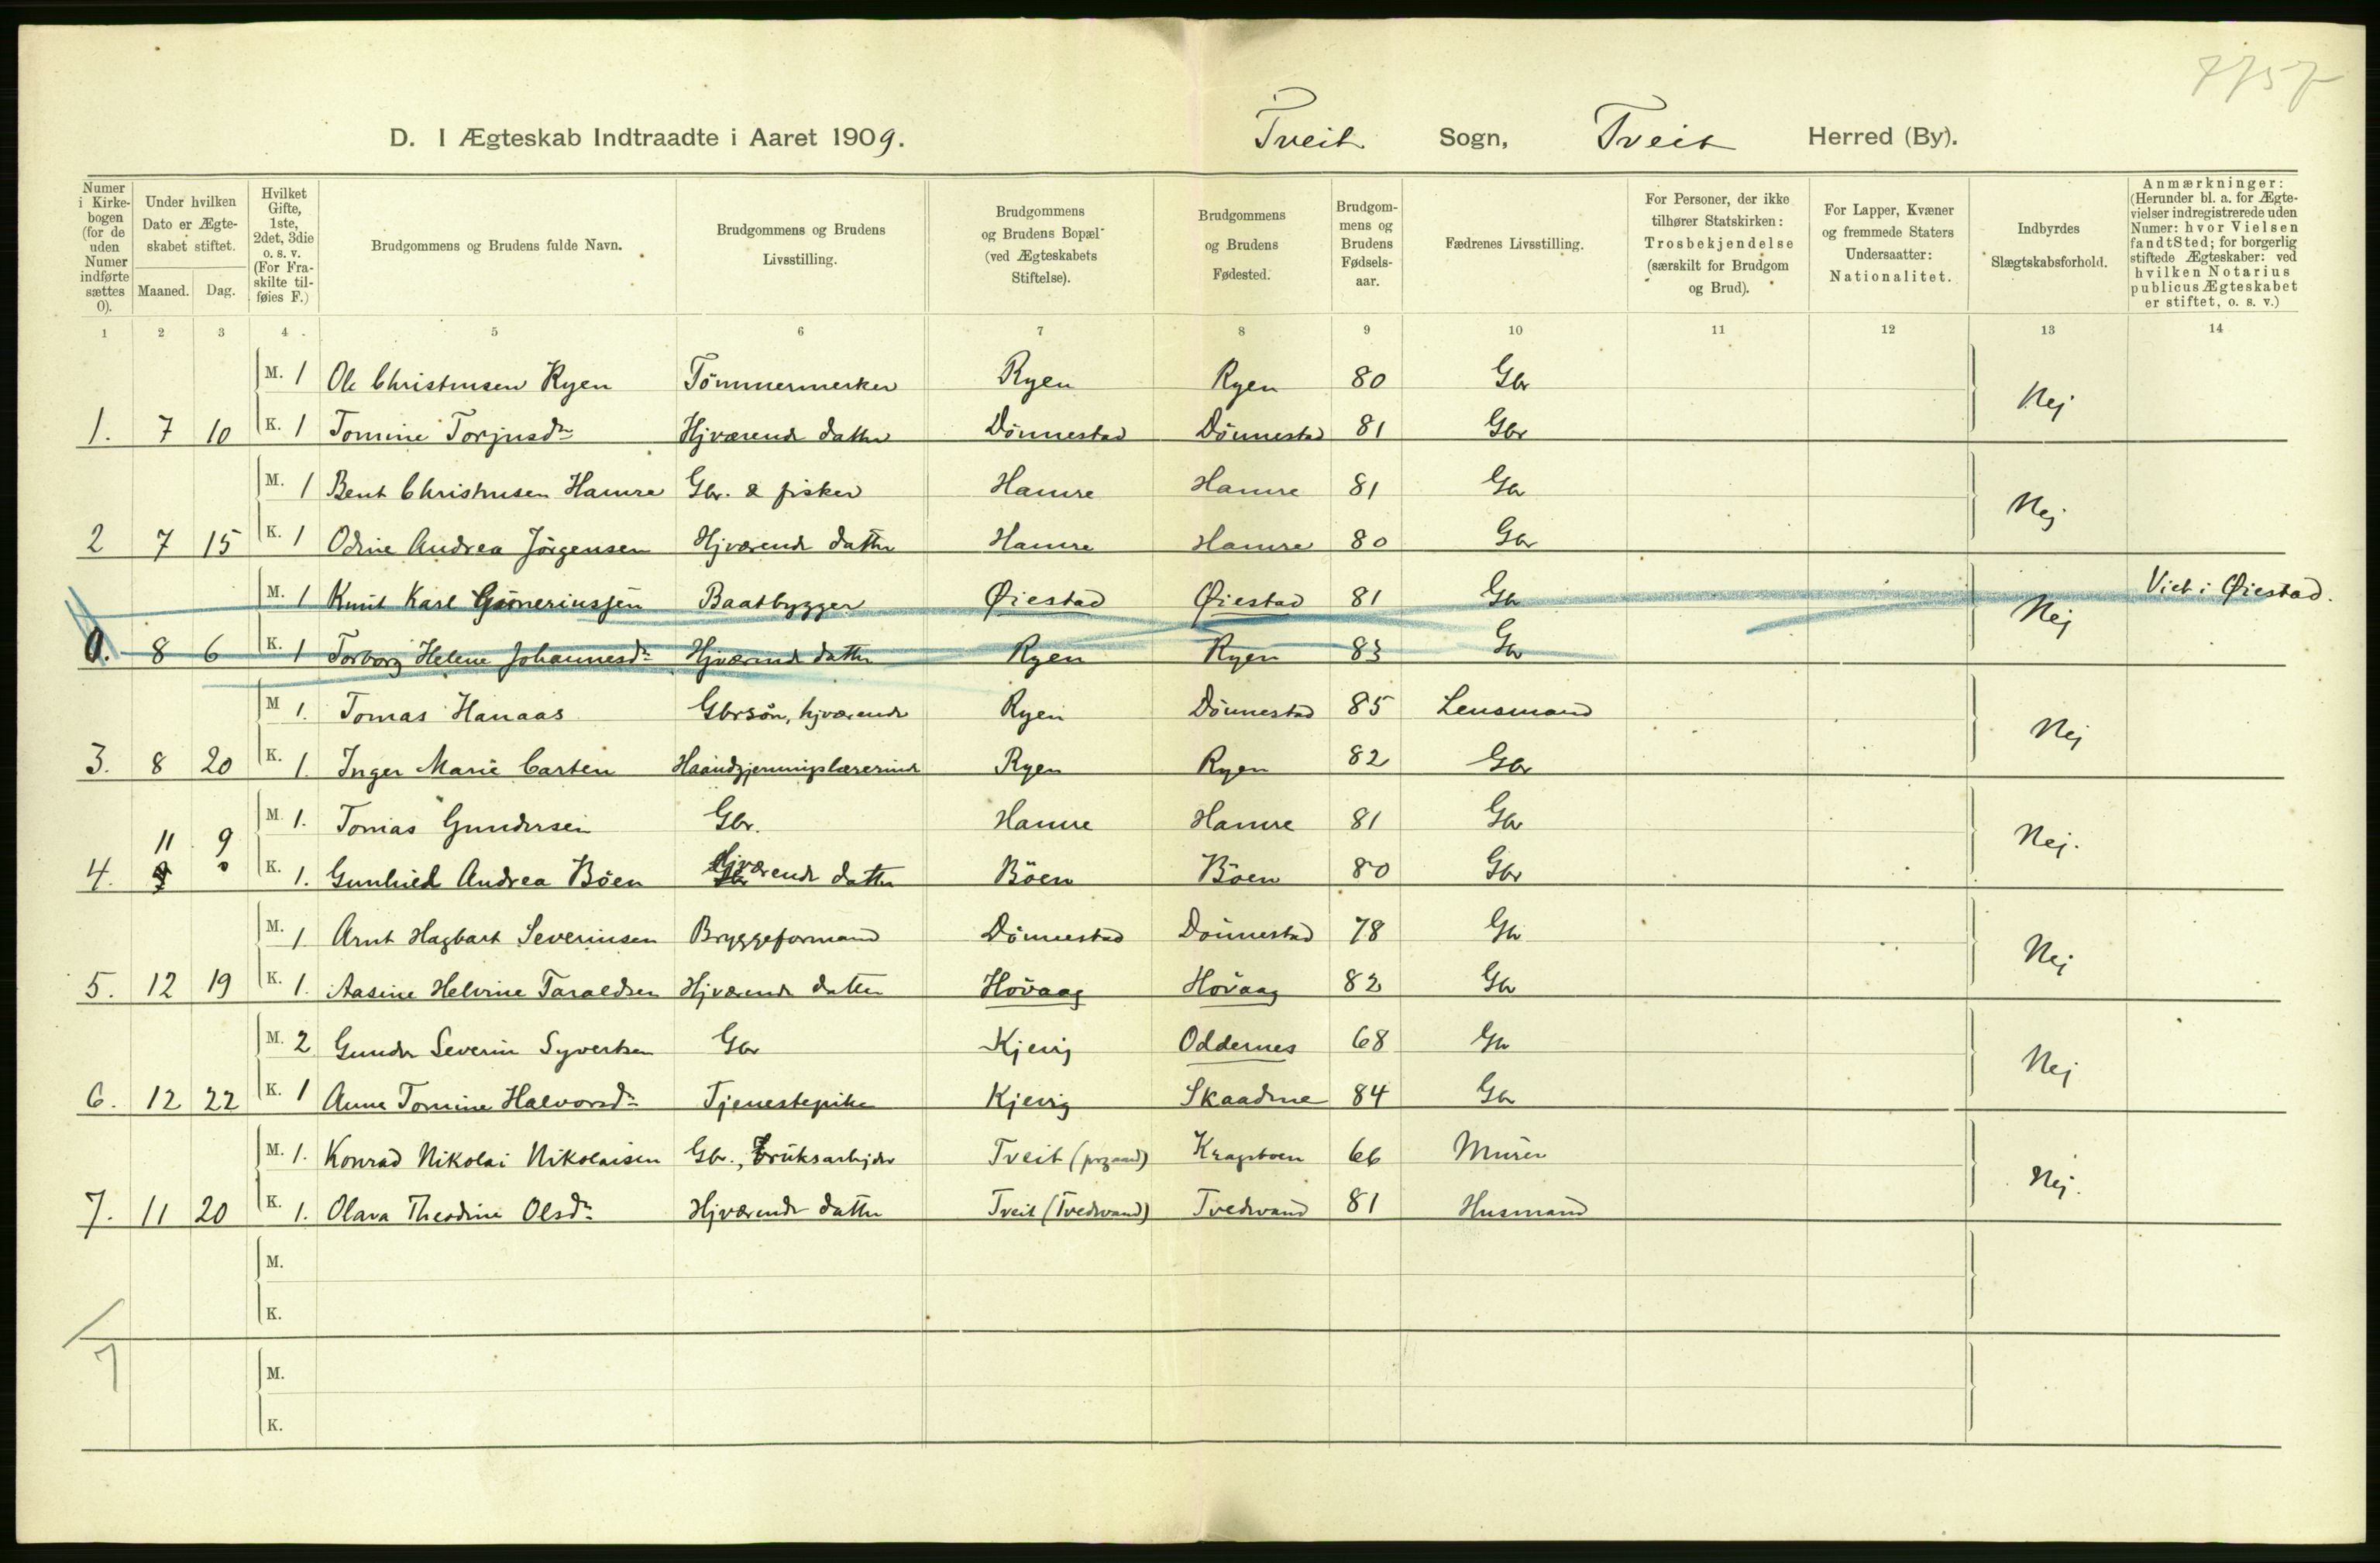 7757
D. I Ægteskab Indtraadte i Aaret 1909. Tveit Sogn, Tveit Herred (By).
Numer i Kirkebogen (for de uden Numer indførte sættes 0).
Under hvilken Dato er Ægteskabet stiftet.
Maaned. Dag.
Hvilket Gifte, 1ste, 2det, 3die o. s. v. (For Fraskilte tilføies F.)
Brudgommens og Brudens fulde Navn.
Brudgommens og Brudens Livsstilling.
Brudgommens og Brudens Bopæl (ved Ægteskabets Stiftelse).
Brudgommens og Brudens Fødested.
Brudgommens og Brudens Fødselsaar.
Fædrenes Livsstilling.
For Personer, der ikke tilhører Statskirken: Trosbekjendelse (særskilt for Brudgom og Brud).
For Lapper, Kvæner og fremmede Staters Undersaatter: Nationalitet.
Indbyrdes Slægtskabsforhold.
Anmærkninger: (Herunder bl. a. for Ægtevielser indregistrerede uden Numer: hvor Vielsen fandt Sted; for borgerlig stiftede Ægteskaber: ved hvilken Notarius publicus Ægteskabet er stiftet, o. s. v.)
1 2 3 4 5 6 7 8 9 10 11 12 13 14
M. 1 Ole Christensen Ryen Tömmermerker Ryen Ryen 80 Gbr Nej
1. 7 10 K. 1 Tomine Torjusdr Hjværende datter Dönnestad Dönnestad 81 Gbr
M. 1 Bent Christensen Hamre Gbr. & fisker Hamre Hamre 81 Gbr Nej
2 7 15 K. 1 Odine Andrea Jörgensen Hjværende datter Hamre Hamre 80 Gbr
M. 1 Knut Karl Baatbygger Øiestad Øiestad 81 Gbr Nej Viet i Øiestad.
0. 8 6 K. 1 Torborg Helene Johannesdr Hjværende datter Ryen Ryen 83 Gbr
M 1. Tomas Hanaas Gbrsön, hjværende Ryen Dönnestad 85 Lensmand Nej
3. 8 20 K. 1. Inger Marie Carsten Haandgjerningslærerinde Ryen Ryen 82 Gbr
M. 1. Tomas Gundersen Gbr. Hamre Hamre 81 Gbr Nej.
4. 11 9 K. 1. Gunhild Andrea Böen Hjværende datter Böen Böen 80 Gbr
M. 1 Arnt Hagbart Severinsen Bryggeformand Dönnestad Dönnestad 78 Gbr Nej
5. 12 19 K. 1. Aasine Helvine Taraldsen Hjværende datter Hövaag Hövaag 82 Gbr
M. 2 Gunder Severin Syvertsen Gbr Kjevig Oddernes 68 Gbr Nej
6. 12 22 K. 1 Anne Tomine Halvorsdr Tjenestepike Kjevig Skaadne 84 Gbr
M. 1. Konrad Nikolai Nikolaisen Gbr., bruksarbejder Tveit 66 Murer Nej.
7. 11 20 K. 1. Olava Theodine Olsdr Hjværende datter Tveit (Tvedvand) Tvedvand 81 Husmand
M.
K.
7
M.
K.